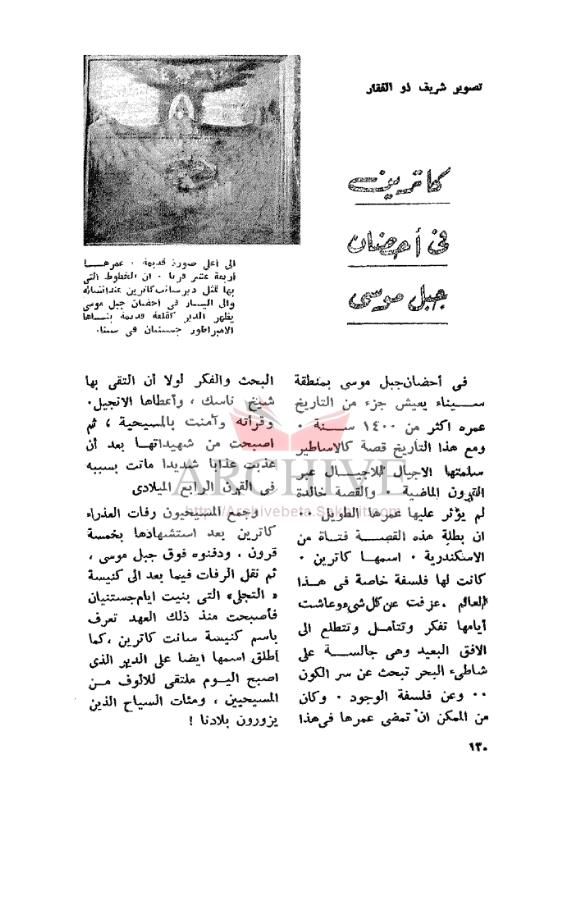 تصوير شريف ذو الفقار
كاترين
في أحضان
جبل موسى
الى أعلى صورة قديمة . عمرهــا
أربعة عشر قرنا . ان الخطوط التى
بها تمثل دير سانت كاترين عند انشائه
والى اليسار فى أحضان جبل موسى
يظهر الدير كقلعة قديمة بنــاها
الامبراطور جستنيان فى سينا.
فى أحضان جبل موسى بمنطقة
ســيناء يعيش جزء من التاريخ
عمره اكثر من ١٤٠٠ ســنة .
ومع هذا التاريخ قصة كالاساطير
سلمتها الاجيال للاجيــال عبر
القرون الماضية . والقصة خالدة
لم يؤثر عليها عمرها الطويل ..
ان بطلة هذه القصــة فتــاة من
الاسكندرية . اسمها كاترين .
كانت لها فلسفة خاصة فى هــذا
العالم . عزفت عن كل شىء وعاشت
أيامها تفكر وتتأمــل وتتطلع الى
الافق البعيد وهى جالســة على
شاطىء البحر تبحث عن سر الكون
.. وعن فلسفة الوجود . وكان
من الممكن ان تمضى عمرها فى هذا
البحث والفكر لولا أن التقى بها
شيخ ناسك ، وأعطاها الانجيل.
وقرأته وآمنت بالمسيحية ، ثم
اصبحت من شهيداتهــا بعد أن
عذبت عذابا شديدا ماتت بسببه
فى القرن الرابع الميلادى
وجمع المسيحيون رفات العذراء
كاترين بعد استشهادها بخمسة
قرون ، ودفنوه فوق جبل موسى ،
ثم نقل الرفات فيما بعد الى كنيسة
« التجلى» التى بنيت ايام جستنيان
فأصبحت منذ ذلك العهد تعرف
باسم كنيسة سانت كاترين ، كما
أطلق اسمها ايضا على الدير الذى
اصبح اليوم ملتقى للالوف مــن
المسيحيين ، ومئات السياح الذين
يزورون بلادنا !
١٣٠
ARCHIVE
http://Archivebeta.Sakhrit.com